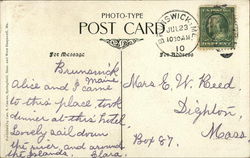 PHOTO-TYPE
POST CARD
BRUNSWICK, M
JUL 23
10 30 AM
10
For Message
For Address
Brunswick
Maine
Alice and I came
to this place took
dinner at this hotel
Lovely sail down
the river, and around
the islands. Clara.
Mrs E. W. Reed
Dighton,
Mass.
Box 87.